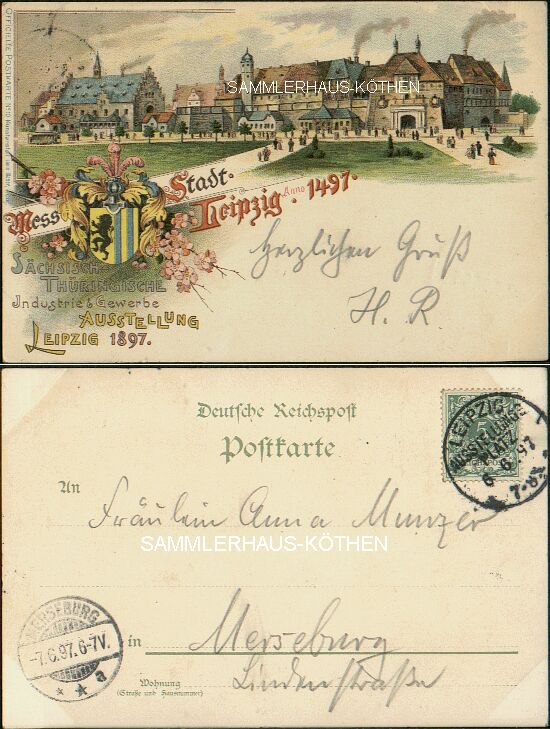 SAMMLERHAUS-KÖTHEN
Mess
Stadt.
Leipzig. Anno 1497.
Herzlichen Gruß
H. R
SÄCHSISCH-
THÜRINGISCHE
Industrie & Gewerbe
AUSSTELLUNG
LEIPZIG 1897.
Deutsche Reichspost
Postkarte
LEIPZIG
AUSSTELLUNGS
PLATZ
6.6.97
An
Fräulein Anna Munzer
SAMMLERHAUS-KÖTHEN
MERSEBURG
-7.6.97.6-7V.
a
in
Merseburg
Wohnung
(Straße und Hausnummer)
Lindenstraße